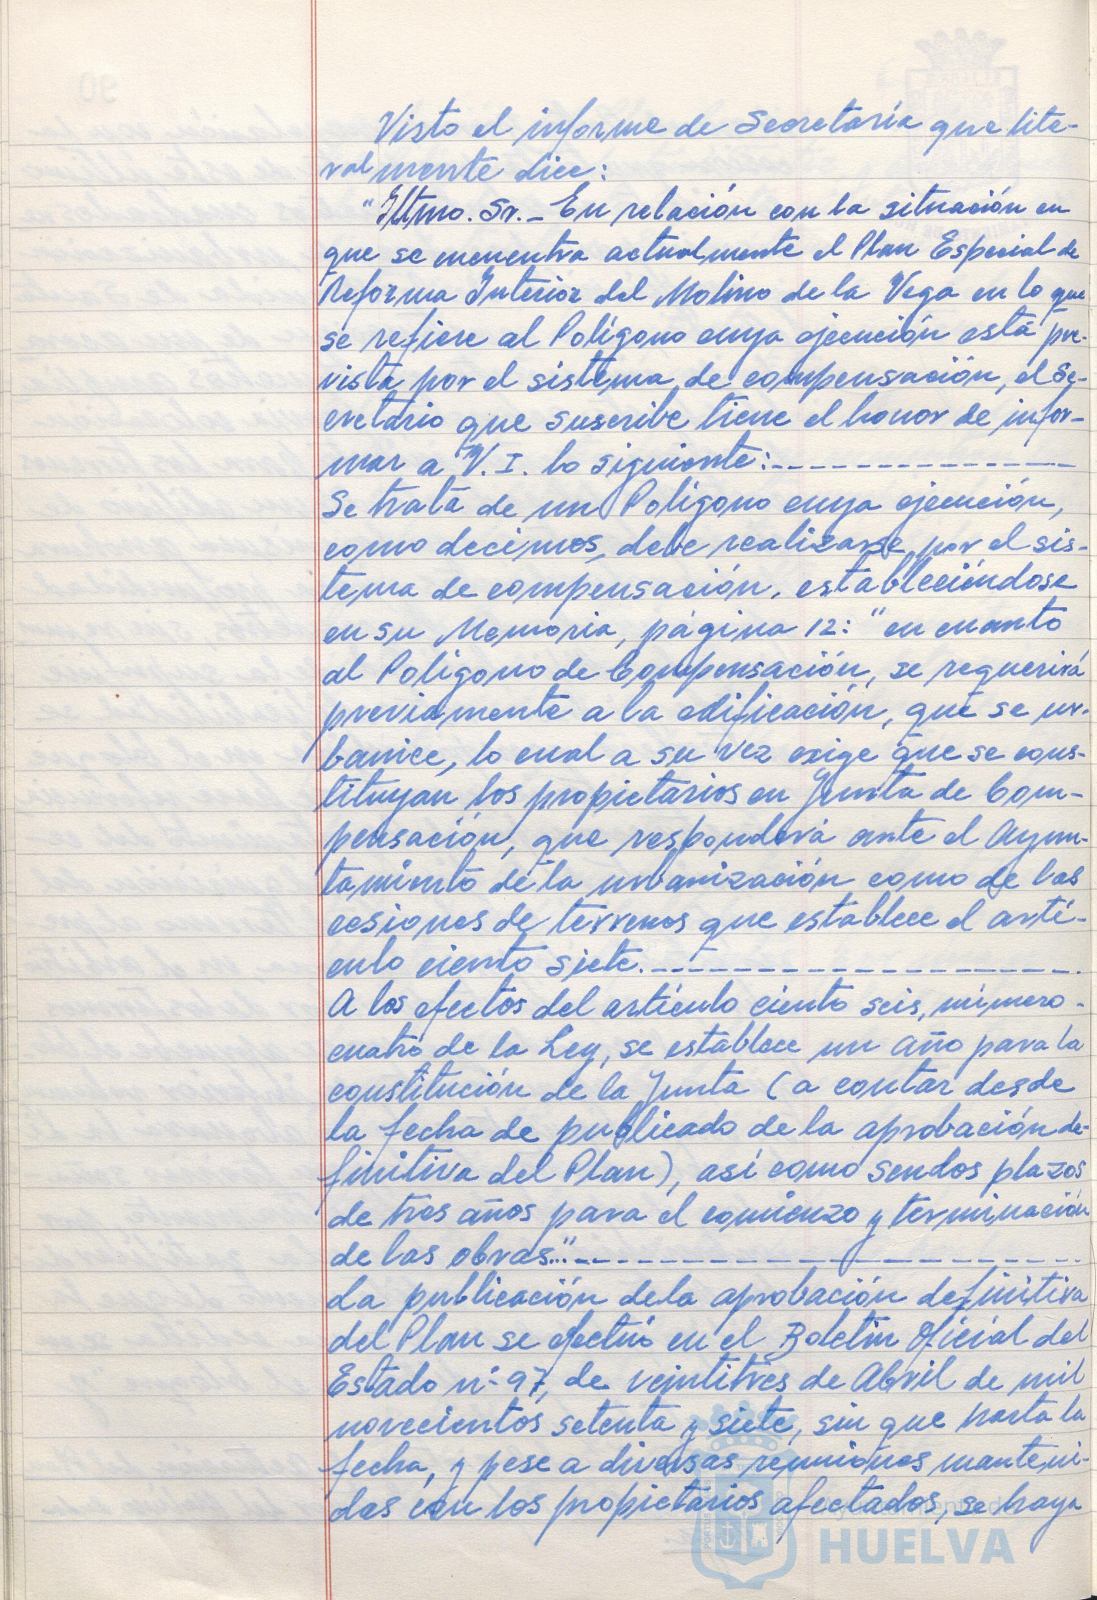 Visto el informe de Secretaría que lite-
ralmente dice:
"Iltmo. Sr._ En relación con la situación en
que se encuentra actualmente el Plan Especial de
Reforma Interior del Molino de la Vega en lo que
se refiere al Polígono cuya ejecución está pre-
vista por el sistema de compensación, el Se-
cretario que suscribe tiene el honor de infor-
mar a V. I. lo siguiente:
Se trata de un Polígono cuya ejecución,
como decimos, debe realizarse por el sis-
tema de compensación, estableciéndose
en su Memoria, página 12: "en cuanto
al Polígono de Compensación, se requerirá
previamente a la edificación, que se ur-
banice, lo cual a su vez exige que se cons-
tituyan los propietarios en Junta de Com-
pensación, que responderá ante el Ayun-
tamiento de la urbanización como de las
cesiones de terrenos que establece el artí-
culo ciento siete.
A los efectos del artículo ciento seis, número
cuatro de la Ley, se establece un año para la
constitución de la Junta (a contar desde
la fecha de publicado de la aprobación de-
finitiva del Plan), así como sendos plazos
de tres años para el comienzo y terminación
de las obras..."
La publicación de la aprobación definitiva
del Plan se efectuó en el Boletín Oficial del
Estado nº 97, de veintitrés de Abril de mil
novecientos setenta y siete, sin que hasta la
fecha, y pese a diversas reuniones manteni-
das con los propietarios afectados, se haya
Ayuntamiento de
HUELVA